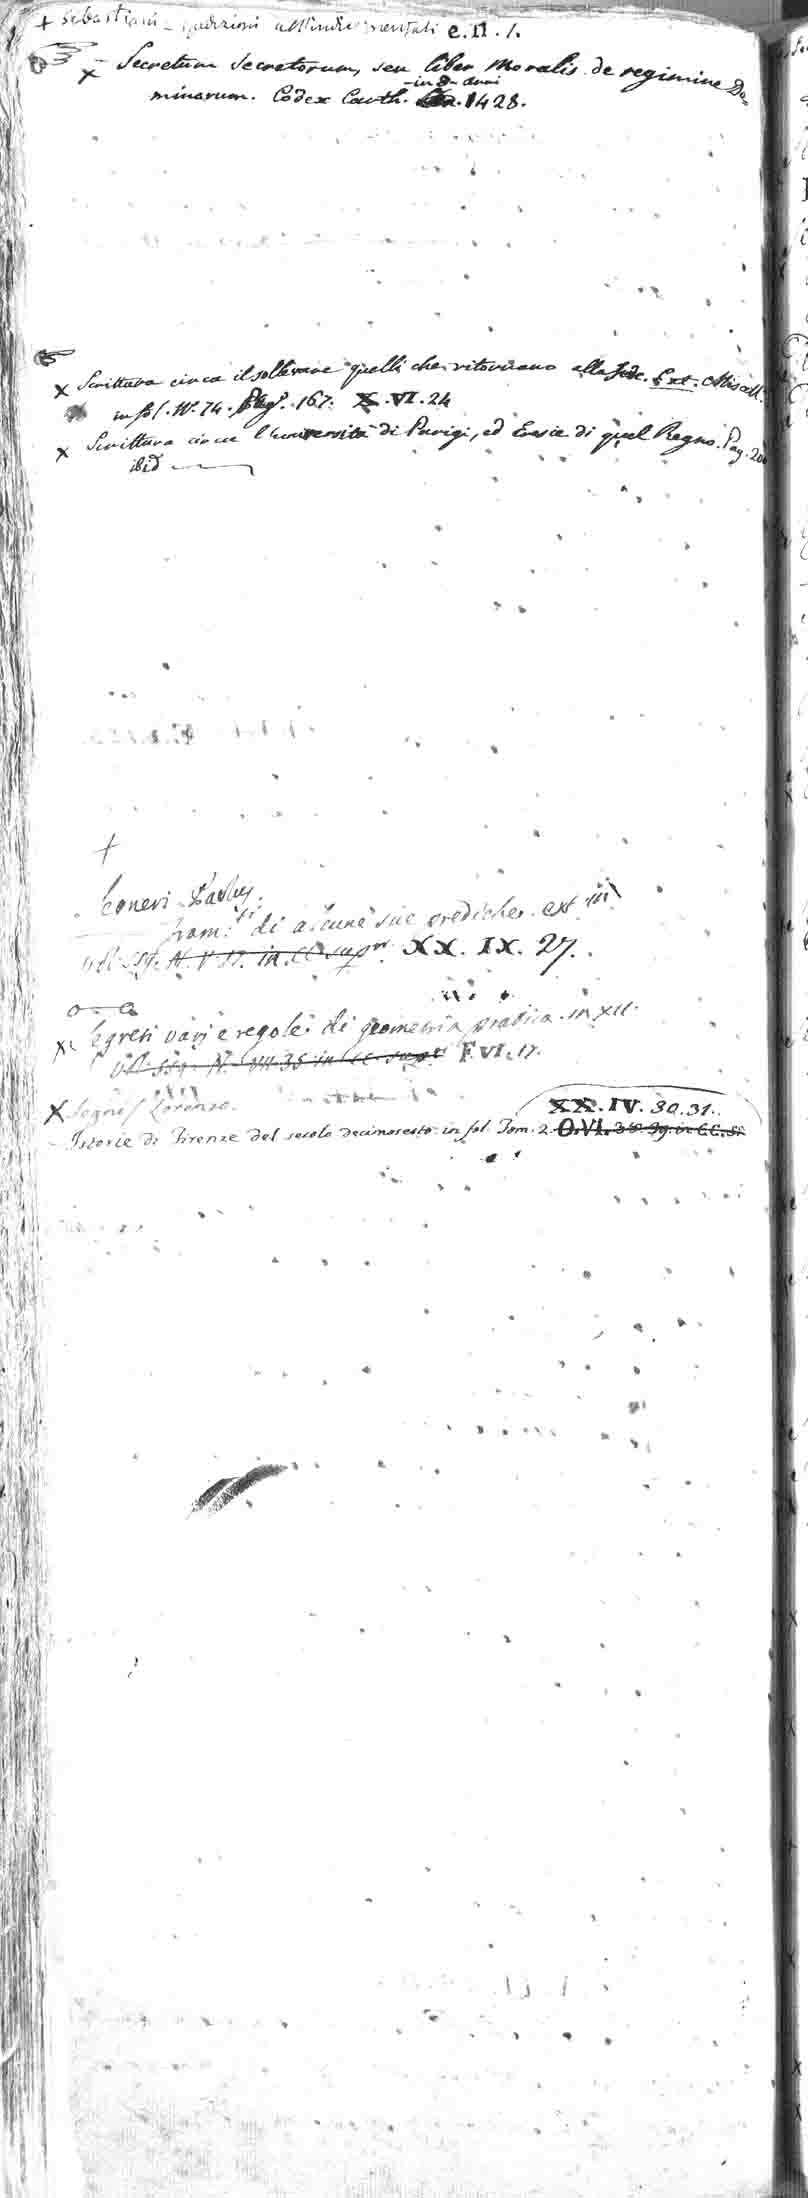 + Sebastiani - spedizioni all'Indie orientali e. II. 1.
x - Secretum Secretorum, seu liber Moralis de regimine Do=
minarum. Codex Carth. in 8. anni 1428.
x Scrittura circa il sollevare quelli che ritornano alla fede. Ext. Miscell.
in fol. N.º 74. Pag. 167. X. VI. 24
x Scrittura circa l'Università di Parigi, ed Eresie di quel Regno. Pag. 200
ibid
+
Segneri Paolus
Fram.ti di alcune sue prediche. ext.
in CC. supr. XX. IX. 27.
x Segreti varj e regole di geometria pratica. in XII.
N. VIII. 35 in CC. supr F. VI. 17.
x Segni / Lorenzo. XX. IV. 30. 31.
Istorie di Firenze del secolo decimosesto in fol. Tom. 2. O. VI. 38. 39. in CC. S.